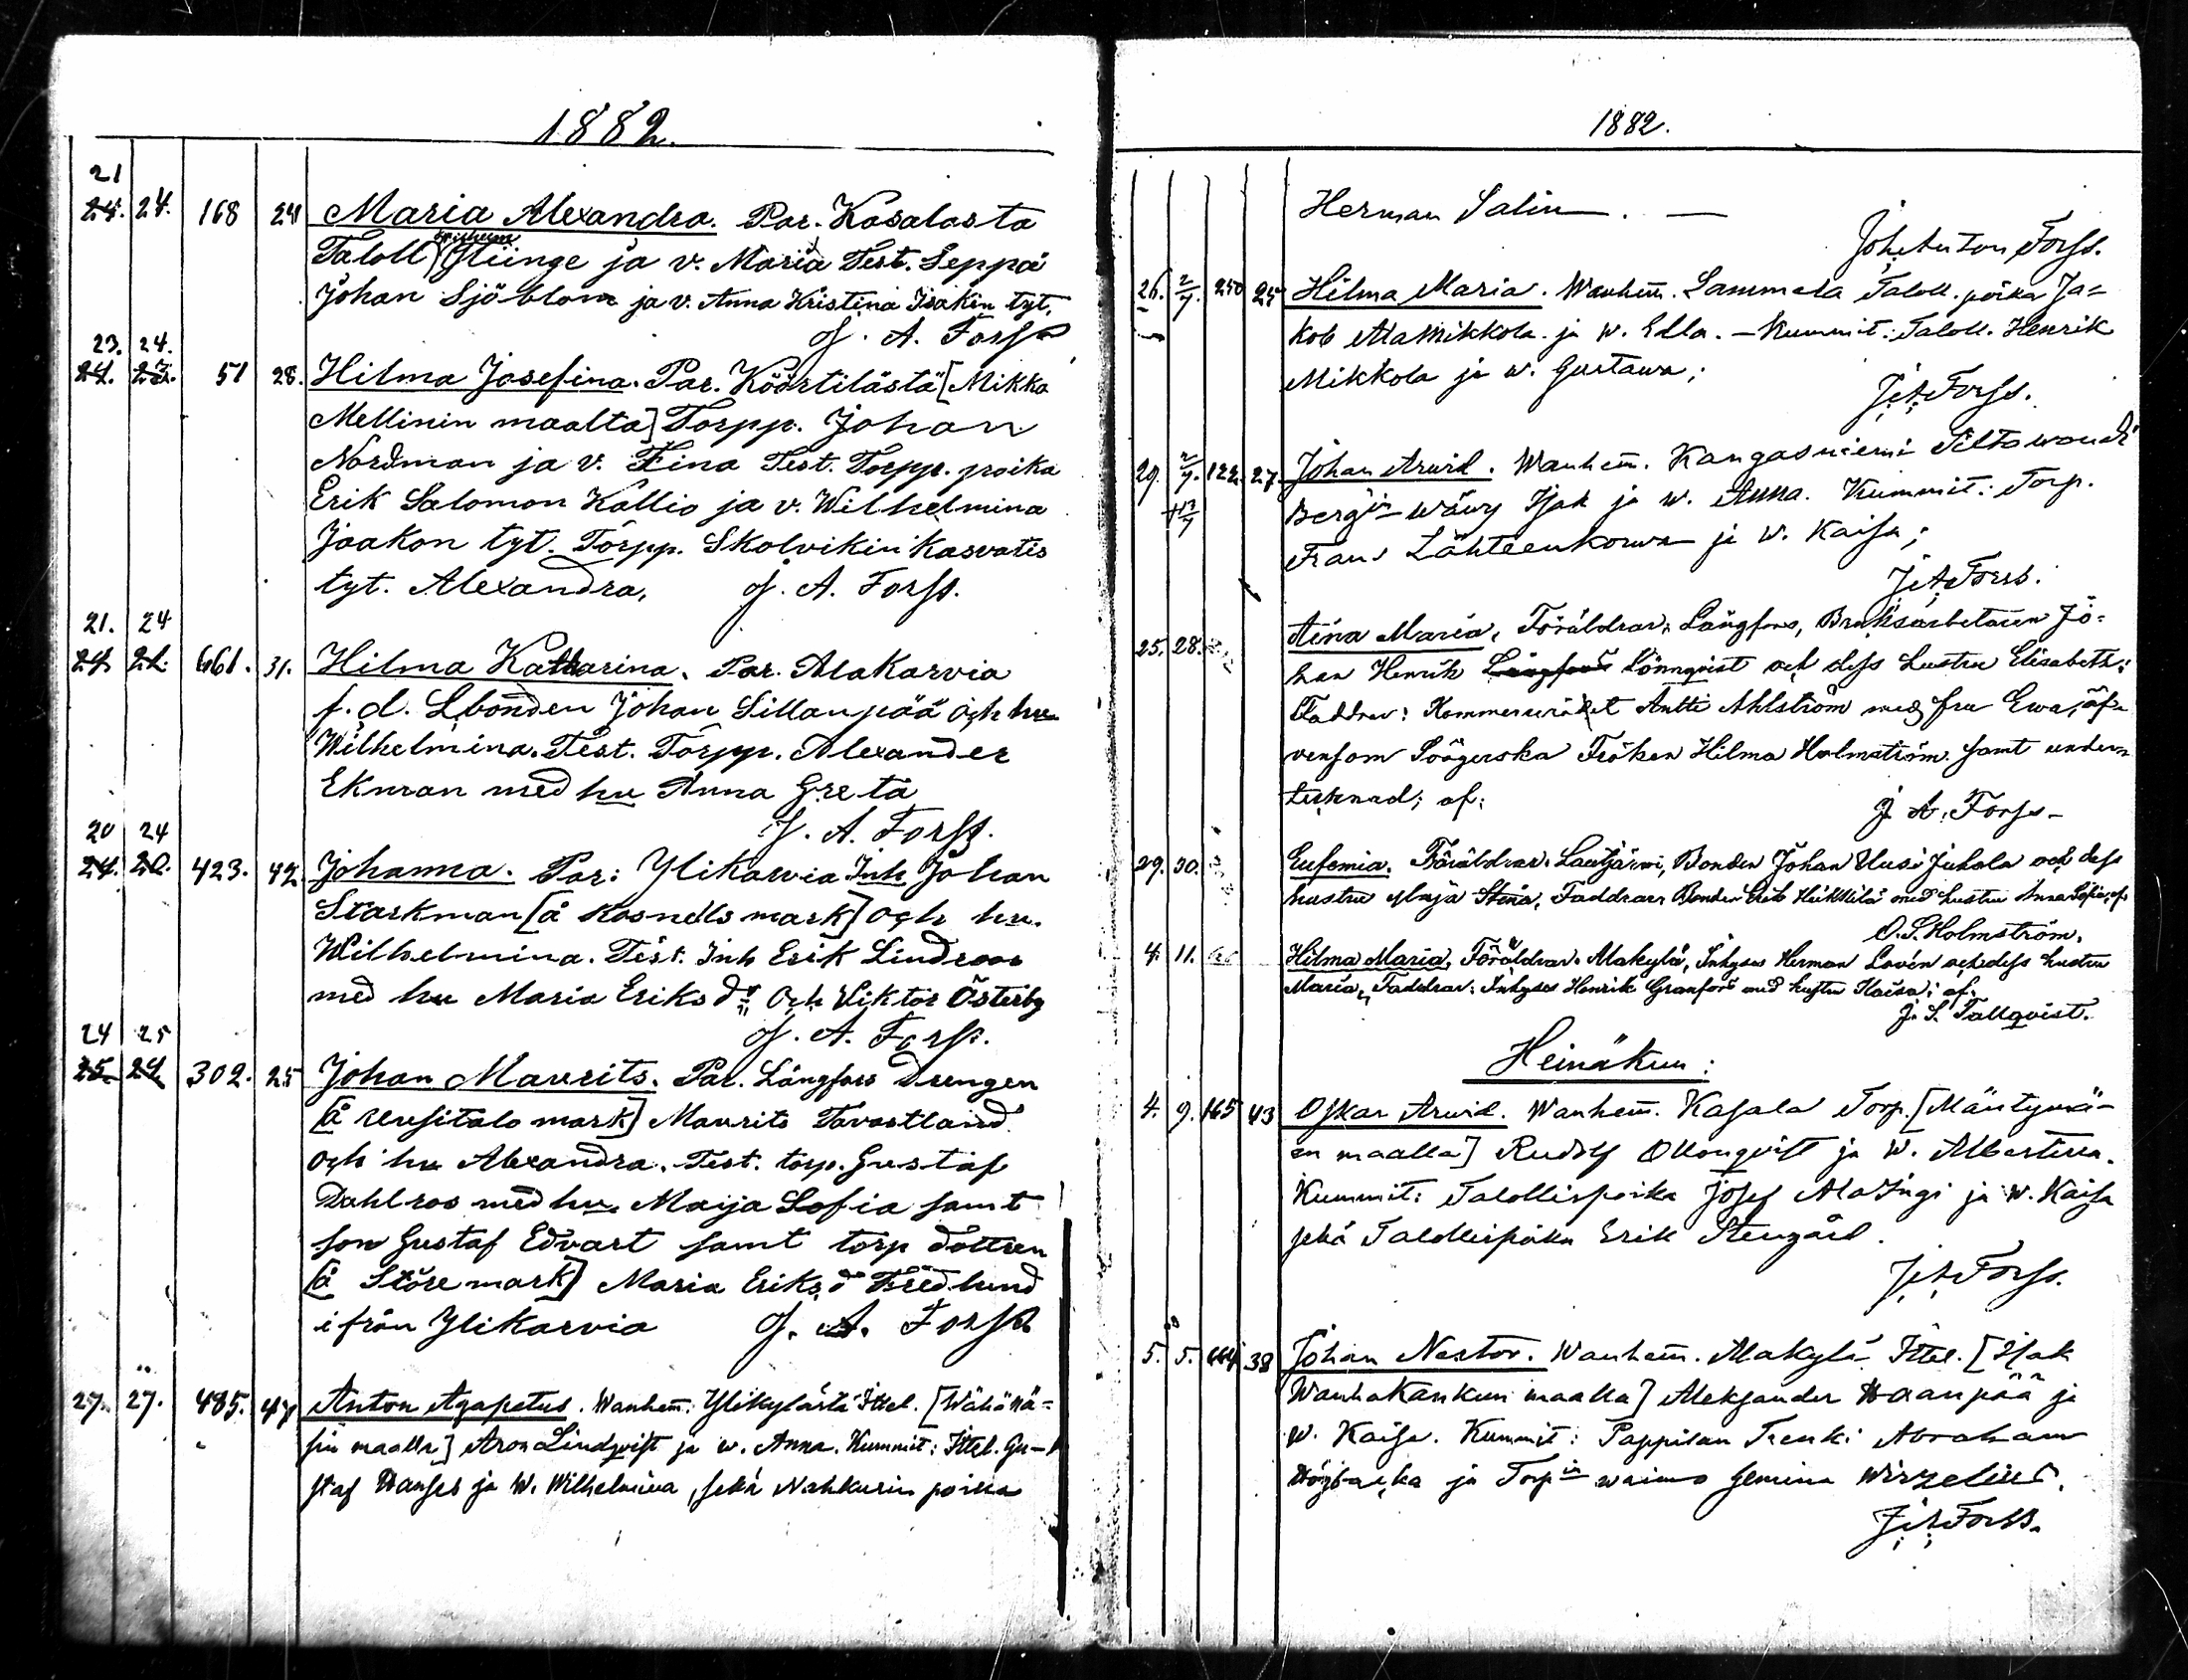 1882.
21
24. 24. 168 24 Maria Alexandra. Par. Kasalasta
Wilhelm
Taloll Yliinge ja v. Maria Test. Seppä
Johan Sjöblom ja v. Anna Kristina Isakin tyt.
J. A. Forss
23. 24.
24. 23. 51 28. Hilma Josefina. Par. Köörtilästä [Mikka
Mellinin maalta] Torpp. Johan
Nordman ja v. Fina Test. Torpp. poika
Erik Salomon Kallio ja v. Wilhelmina
Jaakon tyt. Torpp. Skolvikin kasvatis
tyt. Alexandra, J. A. Forss.
21. 24
24. 21. 661. 31. Hilma Katharina. Par. Alakarvia
f.d. Lbonden Johan Sillanpää och hu
Wilhelmina. Test. Torpp. Alexander
Ekman med hu Anna Greta
J. A. Forss.
20 24
24. 20. 423. 42. Johanna. Par: Ylikarvia Inh Johan
Starkman [å Kosnells mark] och hu.
Wilhelmina. Test. Inh Erik Lindroos
med hu Maria Eriksdr och Viktor Österby
J. A. Forss.
24 25
25. 24. 302. 25 Johan Maurits. Par. Långfors Drengen
[å Uusitalo mark] Maurits Tavastland
och hu Alexandra. Test. torp. Gustaf
Dahlroos med hu. Maija Sofia samt
son Gustaf Edvart samt torp dottren
[å Störe mark] Maria Eriksd Fredlund
ifrån Ylikarvia J. A. Forss
27. 27. 485. 47 Anton Agapetus. Wanhem: Ylikylästä Ittel. [Wähänä=
sin maalla] Aron Lindqvist ja w. Anna. Kummit: Ittel. Gu-
staf Hanses ja W. Wilhelmina, sekä Nahkurin poika
1882.
Herman Salin. —
Joh. Anton Forss.
26. 2/7. 250 25 Hilma Maria. Wanhem. Lammela Taloll. poika Ja=
kob AlaMikkola ja w. Edla. — Kummit: Taloll. Henrik
Mikkola ja w. Gustawa;
J. A. Forss.
29. 2/7. 122. 27. Johan Arvid. Wanhem. Kangasniemi Siltawoudi
†17/7 Bergin wäwy Isak ja w. Anna. Kummit: Torp.
Frans Lähteenkorwa ja w. Kaisa;
J. A. Forss.
25. 28. Aina Maria, Föräldrar: Långfors, Bruksarbetaren Jo=
han Henrik Långfors Lönnqvist och dess hustru Elisabeth:
Faddrar: Kommerserådet Antti Ahlström med fru Ewa, äf=
vensom Fröken Hilma Holmström samt under=
tecknad; af:
J. A. Forss-
29. 30. Eufemia. Föräldrar: Lautjärwi, Bonden Johan Uusi Juhola och dess
hustru Maja Stina, Faddrar: Bonden Erik Heikkilä med hustru Anna Sofia; af:
O. S. Holmström.
4. 11. Hilma Maria, Föräldrar: Makylä, Inhyses Herman Lovén och dess hustru
Maria, Faddrar: Inhyses Henrik Granfors med hustru Kaisa; af:
J. S. Tallqvist.
Heinäkuu:
4. 9. 165 43 Oskar Arwid. Wanhem. Kasala Torp. [Mäntymä=
en maalla] Rudolf Ollonqvist ja W. Albertina.
Kummit: Talollispoika Josef AlaYngi ja w. Kaisa
sekä Talollispoika Erik Stengård.
J. A. Forss.
5. 5. 664 38 Johan Nestor. Wanhem. Makylä Ittel. [Isak
WanhaKankun maalla] Aleksander Haanpää ja
w. Kaisa. Kummit: Pappilan Trenki Abraham
Högbacka ja Torpin waimo Jemina Wirzelius.
J. A. Forss.